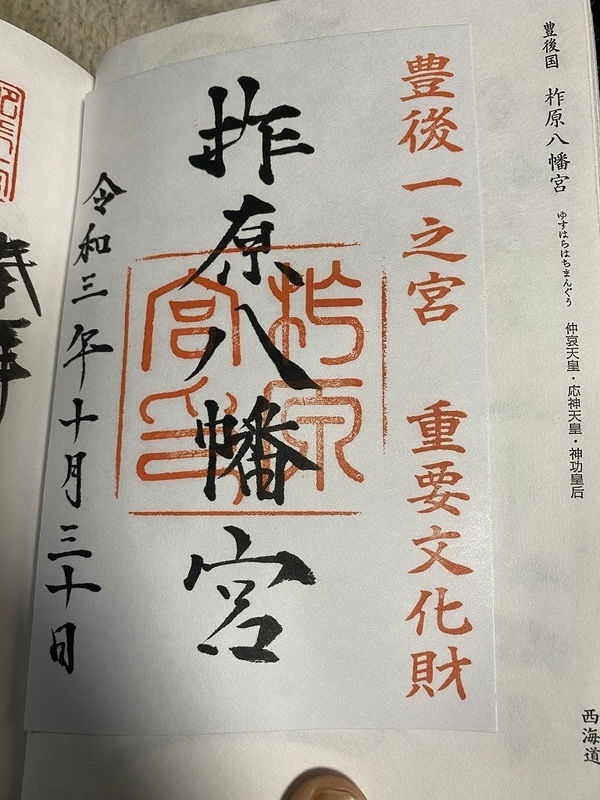 豊後国 柞原八幡宮 ゆすはらはちまんぐう 仲哀天皇・応神天皇・神功皇后
西海道
豊後一之宮 重要文化財
柞原八幡宮
柞原宮印
令和三年十月三十日